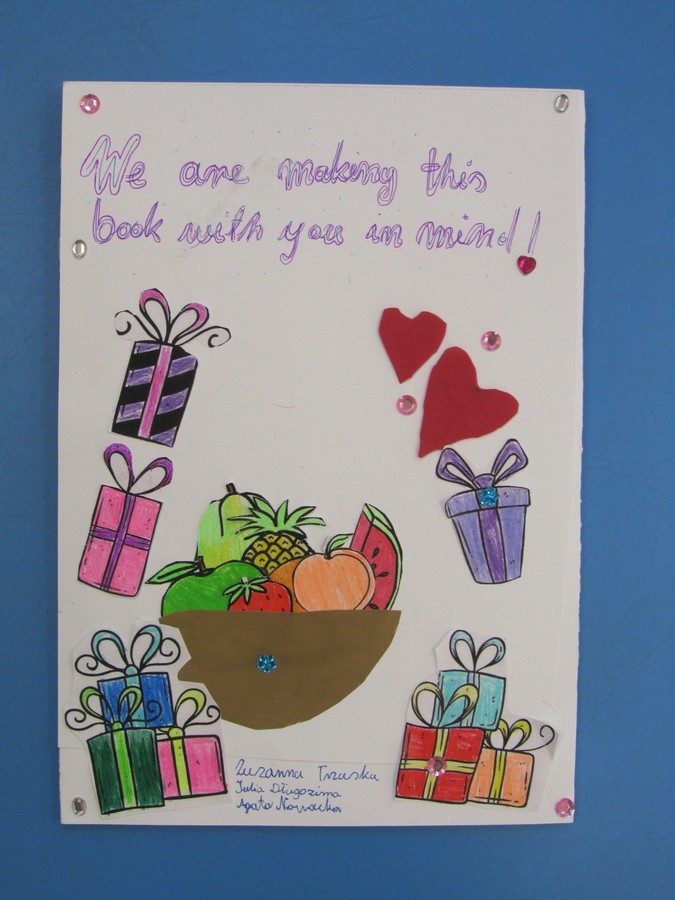 We are making this
book with you in mind!
Zuzanna Trzuska
Julia Długozima
Agata Nowacka